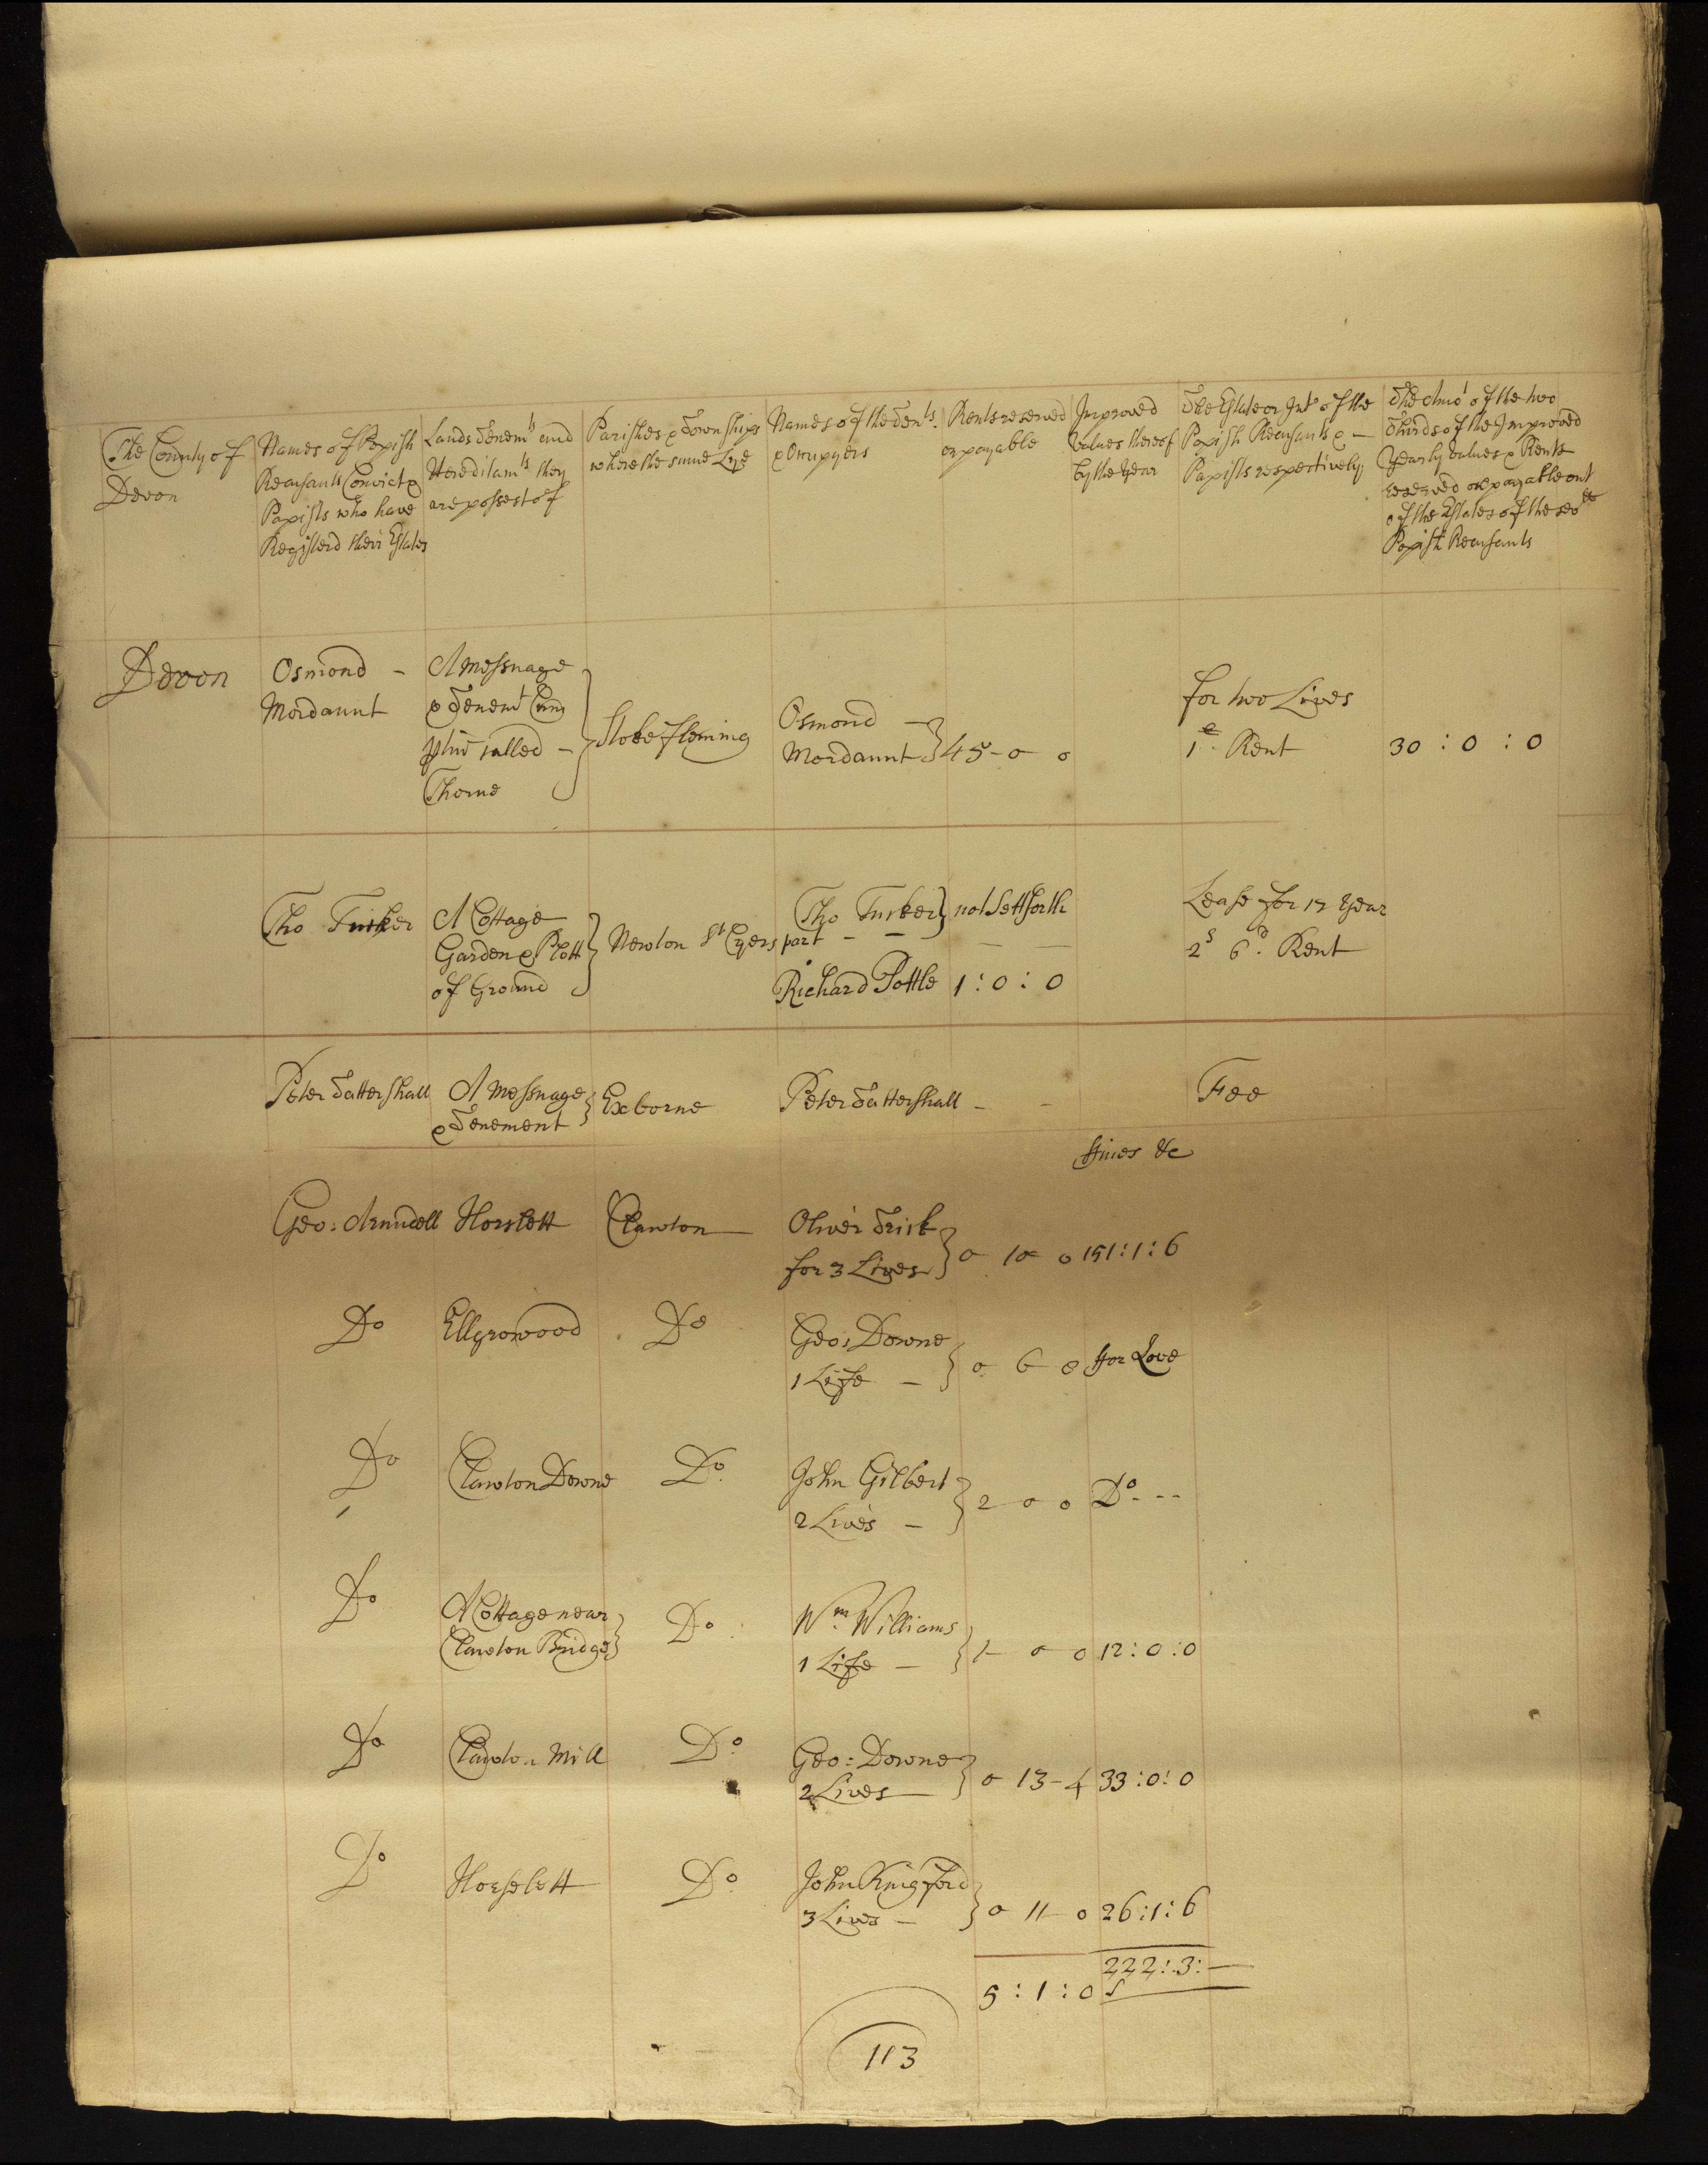 The County of
Devon
Names of Popish
Recusants Convict &
Papists who have
Registerd their Estates
Lands Tenemts and
Hereditamts they
are possest of
Parishes & Townships
where the same Lye
Names of the Tents.
& Occupyers
Rents reserved
or payable
Improved
Values thereof
by the Year
The Estate or Intt of the
Popish Recusants & —
Papists respectively
The Amot of the two
Thirds of the Improved
Yearly Values & Rents
reserved or payable out
of the Estates of these
Popish Recusants
Devon
Osmond —
Mordaunt
A Messuage
& Tenemt
called —
Thorne
Stokefleming
Osmond —
Mordaunt
45 - 0 0
for two Lives
1 . Rent
30 : 0 : 0
Tho Tucker
A Cottage
Garden & Plott
of Ground
Newton St Cyers
Tho Tucker
part — —
not Settforth
Richard Pottle
1 : 0 : 0
Lease for 12 Year
2s 6d. Rent
Peter Tattershall
A Messuage
& Tenement
Exborne
Peter Tattershall — —
Fee
ffines &c
Geo: Arundell
Horslett
Clawton
Oliver Frisk
for 3 Lives
0 10 0
151:1:6
Do
Ellgrowood
Do
Geo: Downe
1 Life —
0 6 8
ffor Love
Do
Clawton Downe
Do
John Gilbert
2 Lives —
2 0 0
Do. --
Do
A Cottage near
Clawton Bridge
Do
Wm. Williams
1 Life —
1 - 0 0
12:0:0
Do
Clawton Mill
Do
Geo: Downe
2 Lives —
0 13 - 4
33:0:0
Do
Horselett
Do
John Kingford
3 Lives —
0 11 0
26:1:6
222:3:—
5 : 1 : 0
113